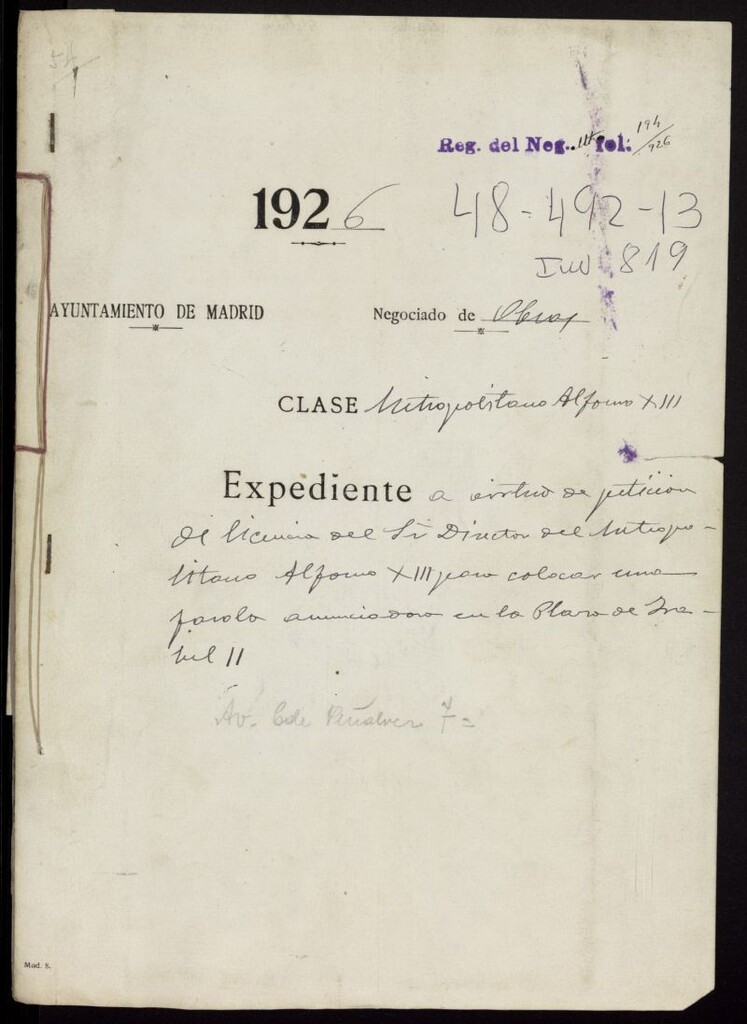 54
Reg. del Neg. fol. 194/926
1926
48-492-13
Inv 819
AYUNTAMIENTO DE MADRID
Negociado de Obras
CLASE Metropolitano Alfonso XIII
Expediente a virtud de petición
de licencia del Sr Director del Metropo-
litano Alfonso XIII para colocar una
farola anunciadora en la Plaza de Isa-
bel II
Av. Cde Peñalver 7=
Mod. 8.